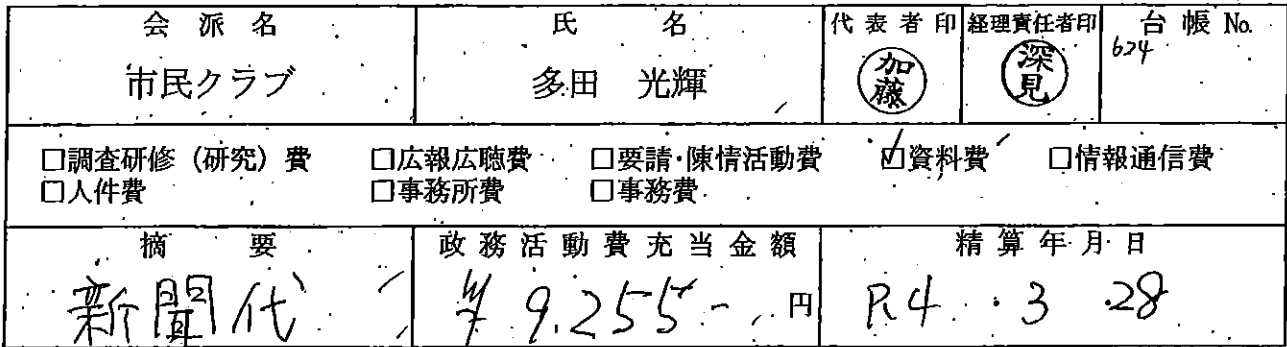 会派名 氏名 代表者印 経理責任者印 台帳 No.
市民クラブ 多田 光輝 加藤 深見 624
□調査研修(研究)費 □広報広聴費 □要請・陳情活動費 ☑資料費 □情報通信費
□人件費 □事務所費 □事務費
摘要 政務活動費充当金額 精算年月日
新聞代 ¥9,255- 円 R.4.3.28